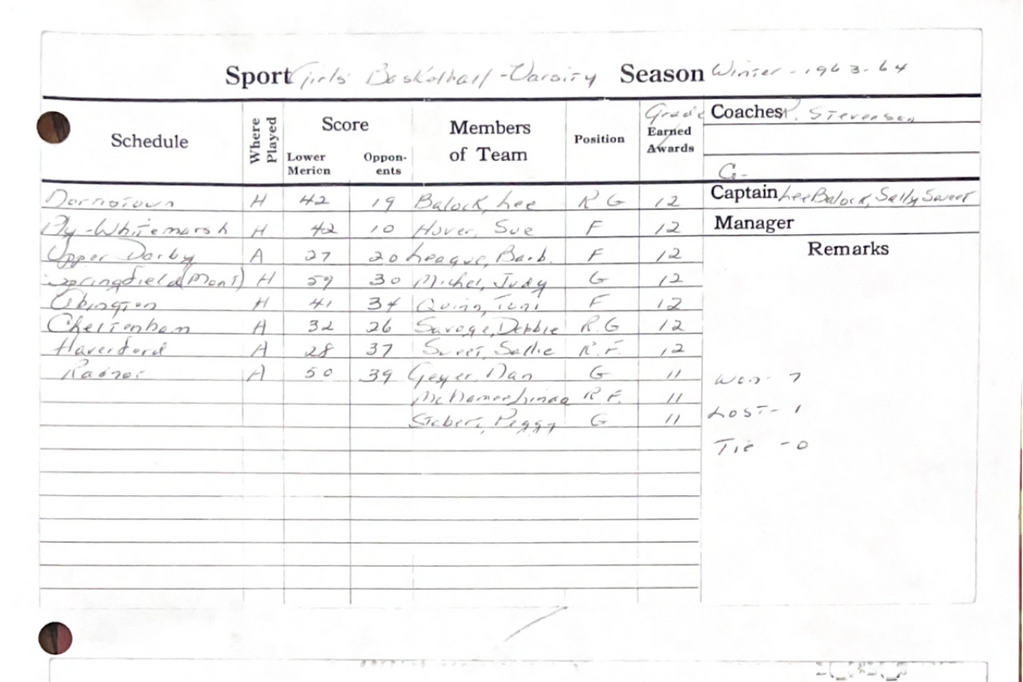 Sport Girls' Basketball - Varsity Season Winter - 1963-64
Schedule Where Played Score Lower Merion Opponents Members of Team Position Grade Earned Awards Coaches R. Stevenson
G-
Norristown H 42 19 Balock, Lee R G 12 Captain Lee Balock, Sally Sweet
Ply-Whitemarsh H 42 10 Hover, Sue F 12 Manager
Upper Darby A 27 20 League, Barb. F 12 Remarks
Springfield (Mont) H 59 30 Michel, Judy G 12
Abington H 41 34 Quinn, Toni F 12
Cheltenham A 32 26 Savage, Debbie R.G 12
Haverford A 28 37 Sweet, Sallie R.F. 12
Radnor A 50 39 Geyer, Nan G 11 Won - 7
McNamee, Linda R F. 11 Lost - 1
Siebert, Peggy G 11
Tie - 0